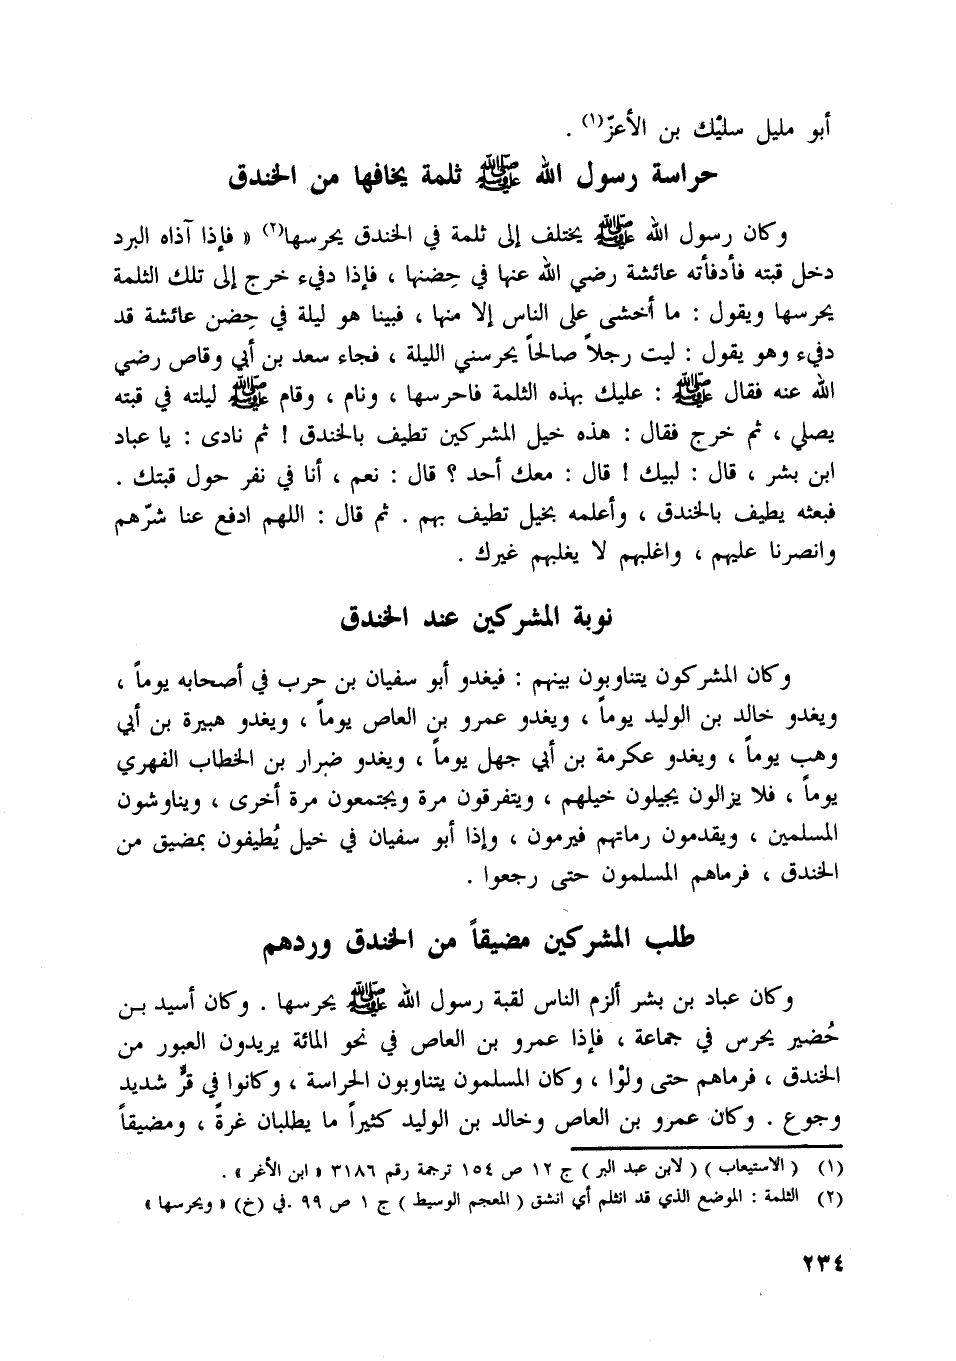 أبو مليل سليْك بن الأعزّ(١) .
حراسة رسول الله ﷺ ثلمة يخافها من الخندق
وكان رسول الله ﷺ يختلف إلى ثلمة في الخندق يحرسها(٢) « فإذا آذاه البرد
دخل قبته فأدفأته عائشة رضي الله عنها في حِضنها ، فإذا دفيء خرج إلى تلك الثلمة
يحرسها ويقول : ما أخشى على الناس إلا منها ، فبينا هو ليلة في حِضن عائشة قد
دفيء وهو يقول : ليت رجلاً صالحاً يحرسني الليلة ، فجاء سعد بن أبي وقاص رضي
الله عنه فقال ﷺ : عليك بهذه الثلمة فاحرسها ، ونام ، وقام ﷺ ليلته في قبته
يصلي ، ثم خرج فقال : هذه خيل المشركين تطيف بالخندق ! ثم نادى : يا عباد
ابن بشر ، قال : لبيك ! قال : معك أحد ؟ قال : نعم ، أنا في نفر حول قبتك .
فبعثه يطيف بالخندق ، وأعلمه بخيل تطيف بهم . ثم قال : اللهم ادفع عنا شرّهم
وانصرنا عليهم ، واغلبهم لا يغلبهم غيرك .
نوبة المشركين عند الخندق
وكان المشركون يتناوبون بينهم : فيغدو أبو سفيان بن حرب في أصحابه يوماً ،
ويغدو خالد بن الوليد يوماً ، ويغدو عمرو بن العاص يوماً ، ويغدو هبيرة بن أبي
وهب يوماً ، ويغدو عكرمة بن أبي جهل يوماً ، ويغدو ضرار بن الخطاب الفهري
يوماً ، فلا يزالون يجيلون خيلهم ، ويتفرقون مرة ويجتمعون مرة أخرى ، ويناوشون
المسلمين ، ويقدمون رماتهم فيرمون ، وإذا أبو سفيان في خيل يُطيفون بمضيق من
الخندق ، فرماهم المسلمون حتى رجعوا .
طلب المشركين مضيقاً من الخندق وردهم
وكان عباد بن بشر ألزم الناس لقبة رسول الله ﷺ يحرسها . وكان أسيد بن
حُضير يحرس في جماعة ، فإذا عمرو بن العاص في نحو المائة يريدون العبور من
الخندق ، فرماهم حتى ولوْا ، وكان المسلمون يتناوبون الحراسة ، وكانوا في قرٍّ شديد
وجوع . وكان عمرو بن العاص وخالد بن الوليد كثيراً ما يطلبان غرةً ، ومضيقاً
(١) ( الاستيعاب ) ( لابن عبد البر ) ج ١٢ ص ١٥٤ ترجمة رقم ٣١٨٦ « ابن الأغر » .
(٢) الثلمة : الموضع الذي قد انثلم أي انشق ( المعجم الوسيط ) ج ١ ص ٩٩ .في (خ) « ويحرسها »
٢٣٤